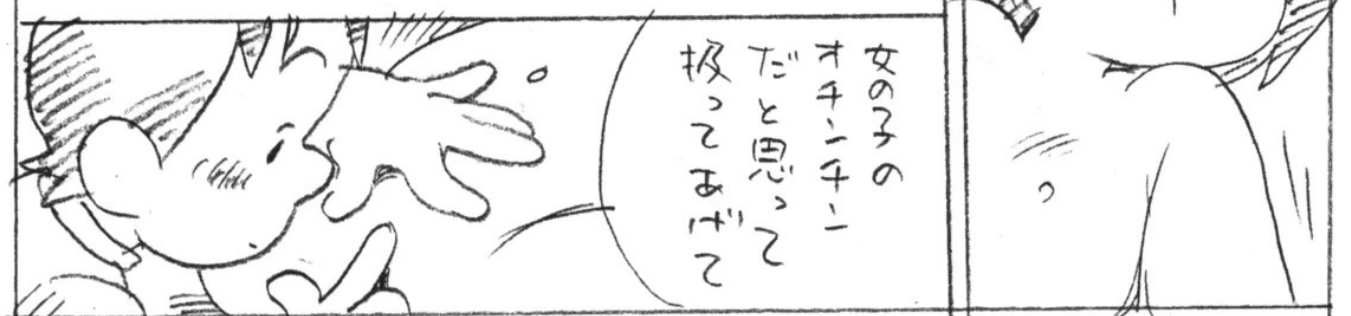 女の子の
オチンチン
だと思って
扱ってあげて